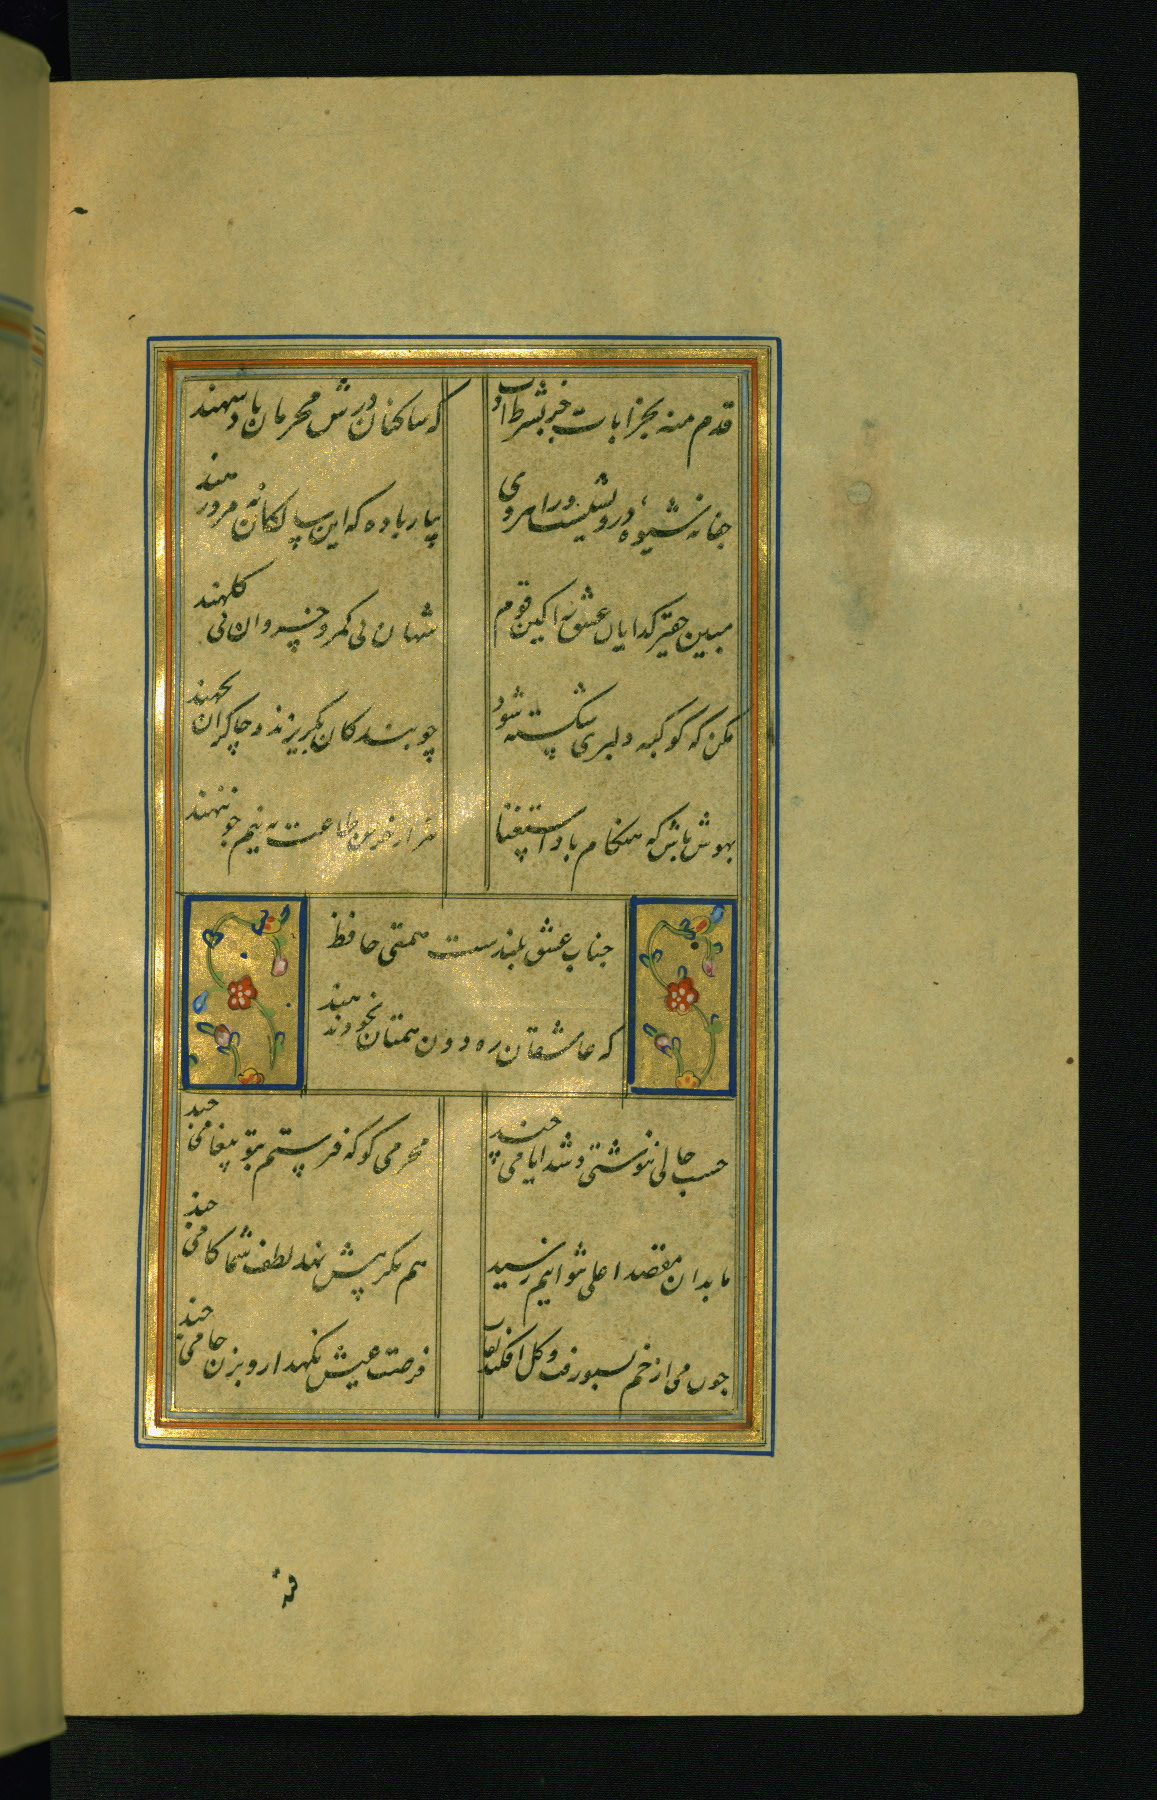 قدم منه بخرابات جز بشرط ادب
که ساکنان درش محرمان پادشهند
جفا نه شیوه درویشیست و راهروی
بیار باده که این سالکان نه مرد رهند
مبین حقیر کدایان عشق را کین قوم
شهان بی کمر و خسروان بی کلهند
مکن که کوکبه دلبری شکسته شود
چو بندکان بکریزند و چاکران بجهند
بهوش باش که هنکام باد استغنا
هزار خرمن طاعت به نیم جو ننهند
جناب عشق بلندست همتی حافظ
که عاشقان ره دون همتان بخود ندهند
حسب حالی ننوشتی و شد ایامی چند
محرمی کو که فرستم بتو پیغامی چند
ما بدان مقصد اعلی نتوانیم رسید
هم مکر پیش نهد لطف شما کامی چند
چون می از خم بسبو رفت و کل افکند نقاب
فرصت عیش نکهدار و بزن جامی چند